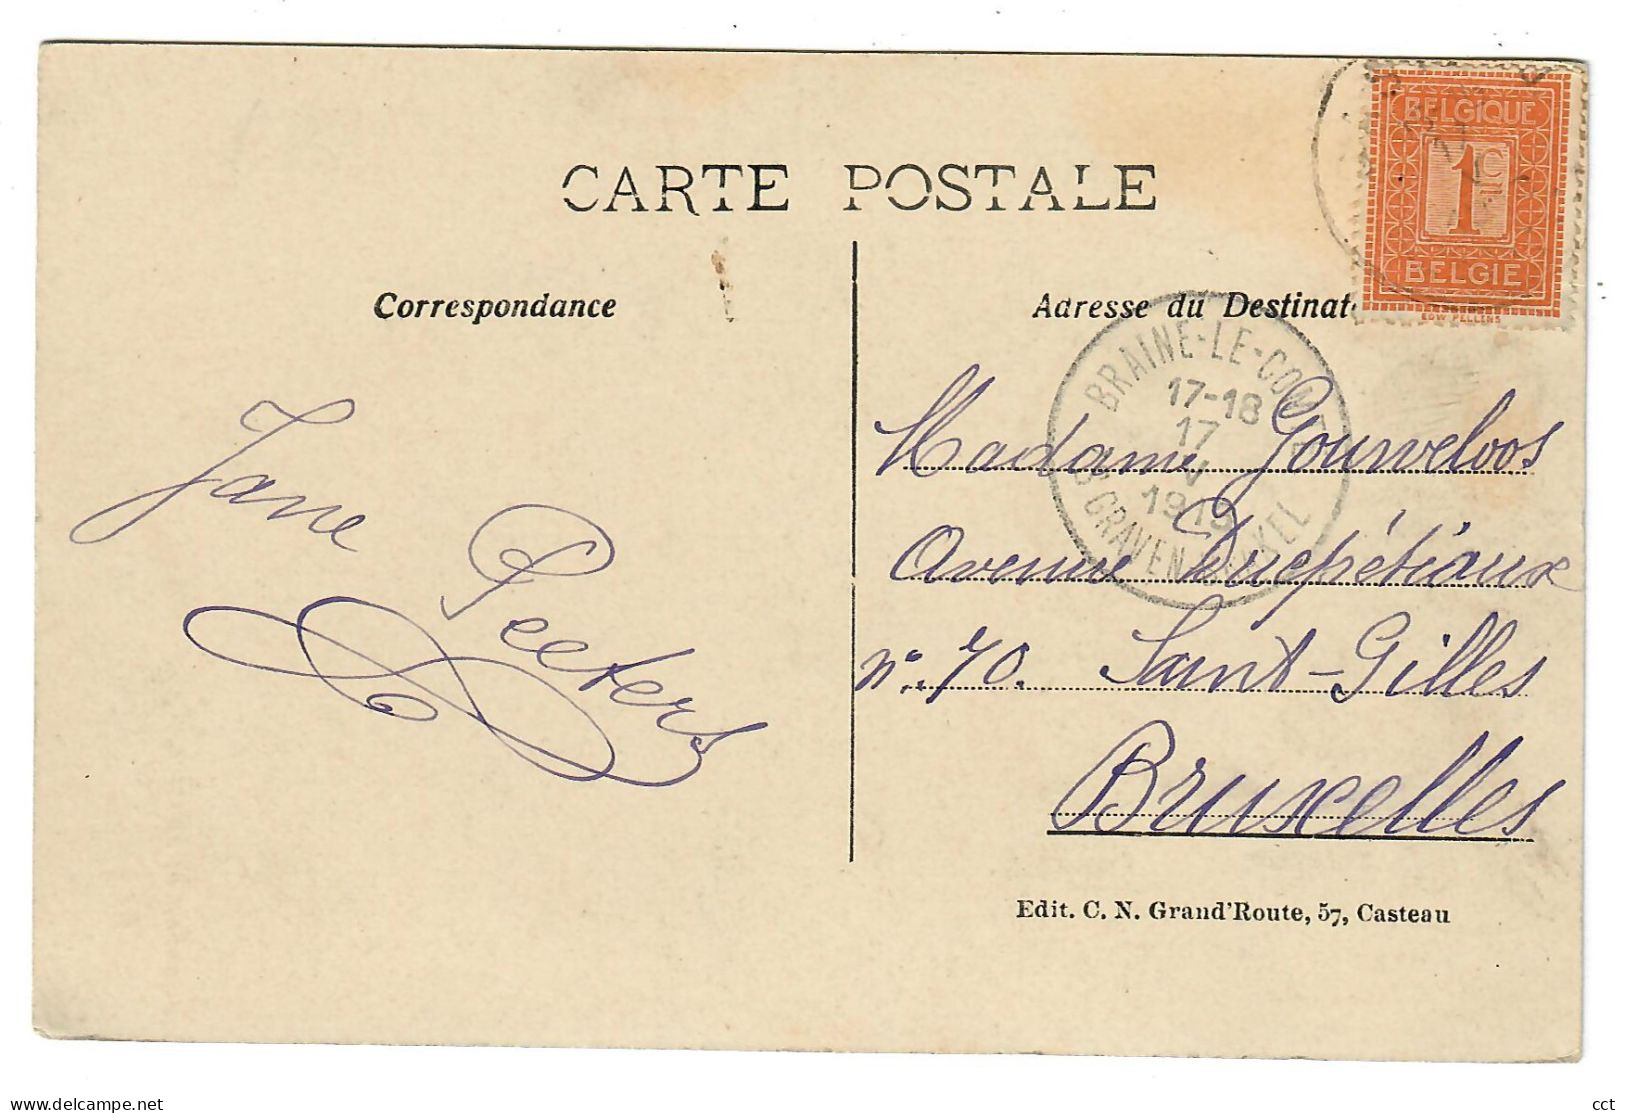 CARTE POSTALE
BELGIQUE
1 Cs
BELGIE
EDW PELLENS
Correspondance
Adresse du Destinat
BRAINE-LE-COMTE
17-18
17
V
'S GRAVENBRAKEL
Jane
Peeters
Madame Gouweloos
Avenue Ducpétiaux
No. 70. Saint-Gilles
Bruxelles
Edit. C. N. Grand'Route, 57, Casteau
delcampe.net
cct